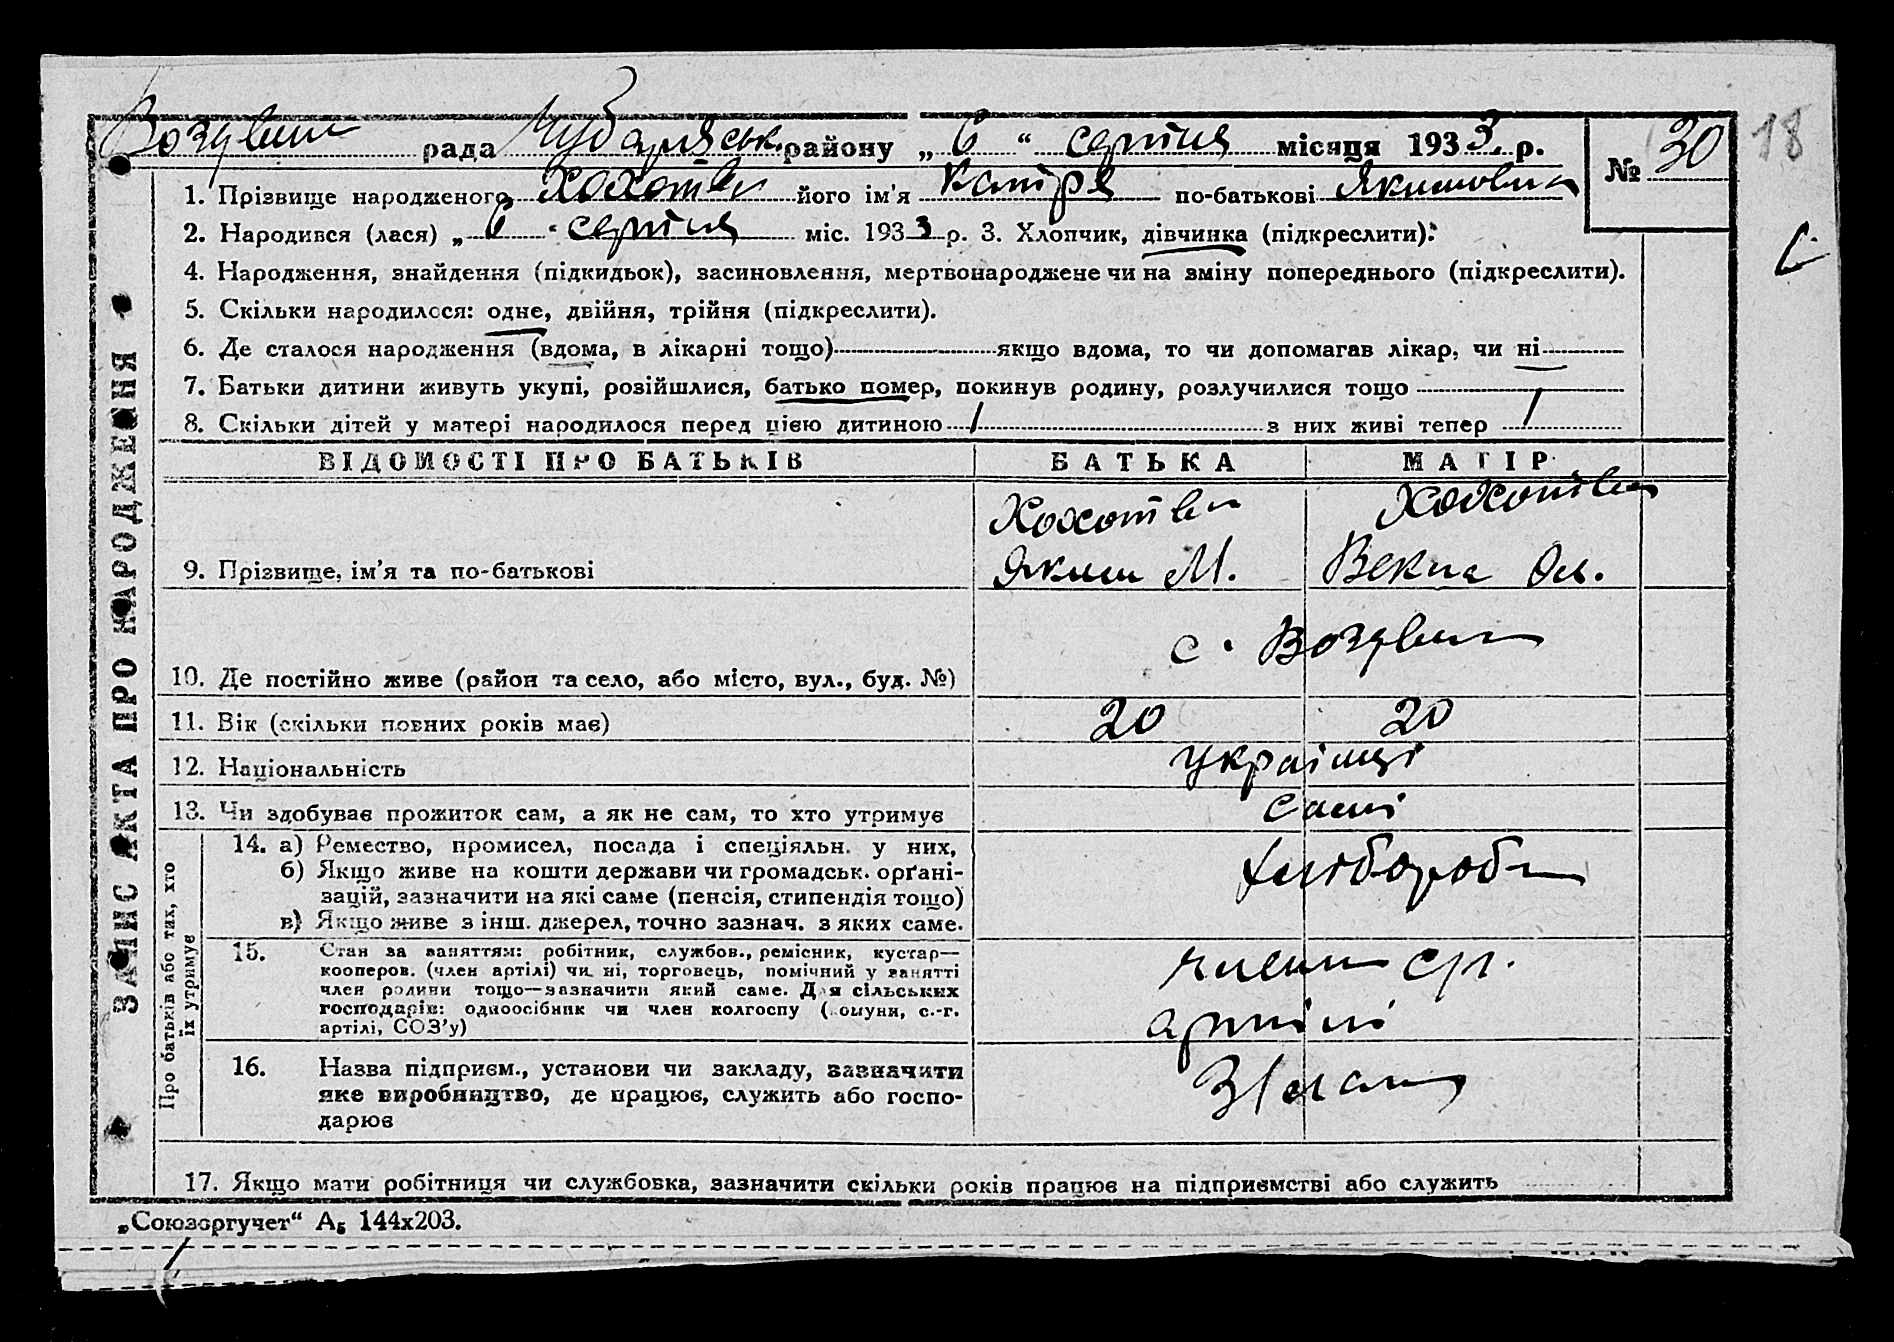 Воздвиж рада Чубарівськ. району „ 6 “ серпня місяця 1933 р. № 30 18
1. Прізвище народженого його ім'я Катря по-батькові Якимовна
2. Народився (лася) „ 6 “ серпня міс. 1933 р. 3. Хлопчик, дівчинка (підкреслити).
4. Народження, знайдення (підкидьок), засиновлення, мертвонароджене чи на зміну попереднього (підкреслити).
5. Скільки народилося: одне, двійня, трійня (підкреслити).
6. Де сталося народження (вдома, в лікарні тощо) якщо вдома, то чи допомагав лікар, чи ні
7. Батьки дитини живуть укупі, розійшлися, батько помер, покинув родину, розлучилися тощо
8. Скільки дітей у матері народилося перед цією дитиною 1 з них живі тепер 1
ВІДОМОСТІ ПРО БАТЬКІВ БАТЬКА МАТІР
9. Прізвище, ім'я та по-батькові Яким М.
10. Де постійно живе (район та село, або місто, вул., буд. №) с. Воздвиж
11. Вік (скільки повних років має) 20 20
12. Національність Українці
13. Чи здобуває прожиток сам, а як не сам, то хто утримує самі
14. а) Ремество, промисел, посада і спеціяльн. у них,
б) Якщо живе на кошти держави чи громадськ. орґані-
зацій, зазначити на які саме (пенсія, стипендія тощо)
в) Якщо живе з інш. джерел, точно зазнач. з яких саме.
хлібороби
15. Стан за заняттям: робітник, службов., ремісник, кустар—
кооперов. (член артілі) чи ні, торговець, помічний у занятті
член родини тощо—зазначити який саме. Для сільських
господарів: одноосібник чи член колгоспу (комуни, с.-г.
артілі, СОЗ'у)
члени с/г.
артілі
16. Назва підприєм., установи чи закладу, зазначити
яке виробництво, де працює, служить або госпо-
дарює
17. Якщо мати робітниця чи службовка, зазначити скільки років працює на підприємстві або служить
ЗАПИС АКТА ПРО НАРОДЖЕННЯ
Про батьків або тах, хто
їх утримує
„Союзоргучет“ А₅ 144х203.